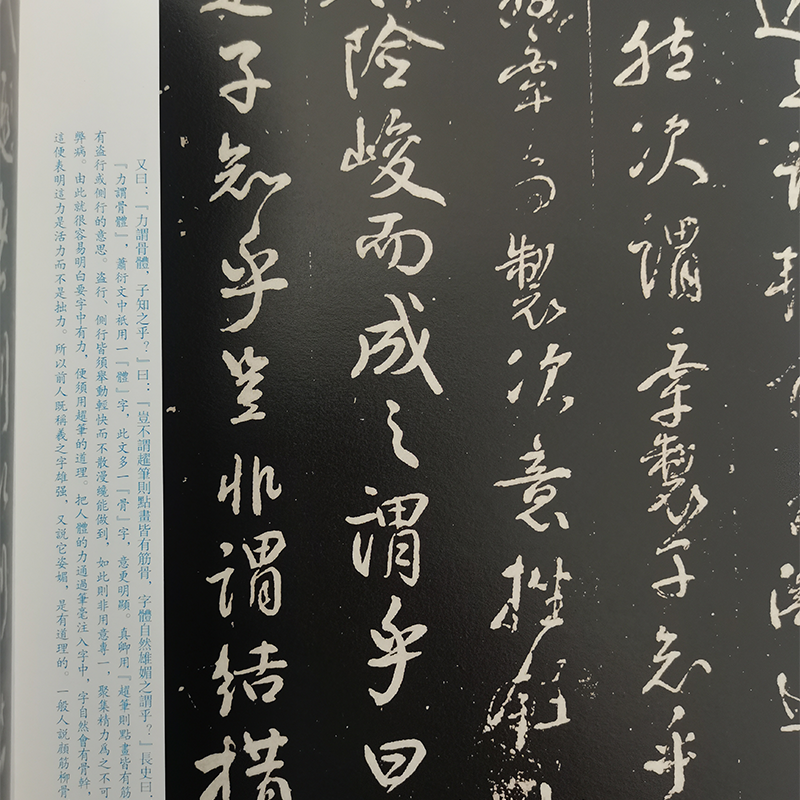 次謂牽製子知乎
牽為製次意挫鋒
險峻而成之謂乎曰
子知乎豈非謂結
又曰：『力謂骨體，子知之乎？』曰：『豈不謂趯筆則點畫皆有筋骨，字體自然雄媚之謂乎？』長史曰：
『力謂骨體』，蕭衍文中衹用一『體』字，此文多一『骨』字，意更明顯。真卿用『趯筆則點畫皆有筋
有盜行或側行的意思。盜行、側行皆須舉動輕快而不散漫纔能做到，如此則非用意專一，聚集精力為之不可
弊病。由此就很容易明白要字中有力，便須用趯筆的道理。把人體的力通過筆毫注入字中，字自然會有骨幹，
這便表明這力是活力而不是拙力。所以前人既稱羲之字雄强，又說它姿媚，是有道理的。一般人說顔筋柳骨